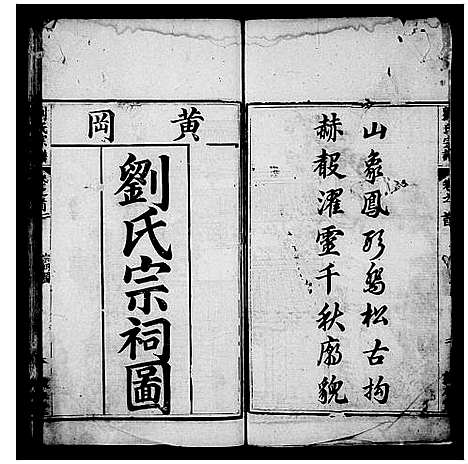 山象鳳形鳥松古拘
赫赧濯靈千秋廟貌
黄岡
劉氏宗祠圖